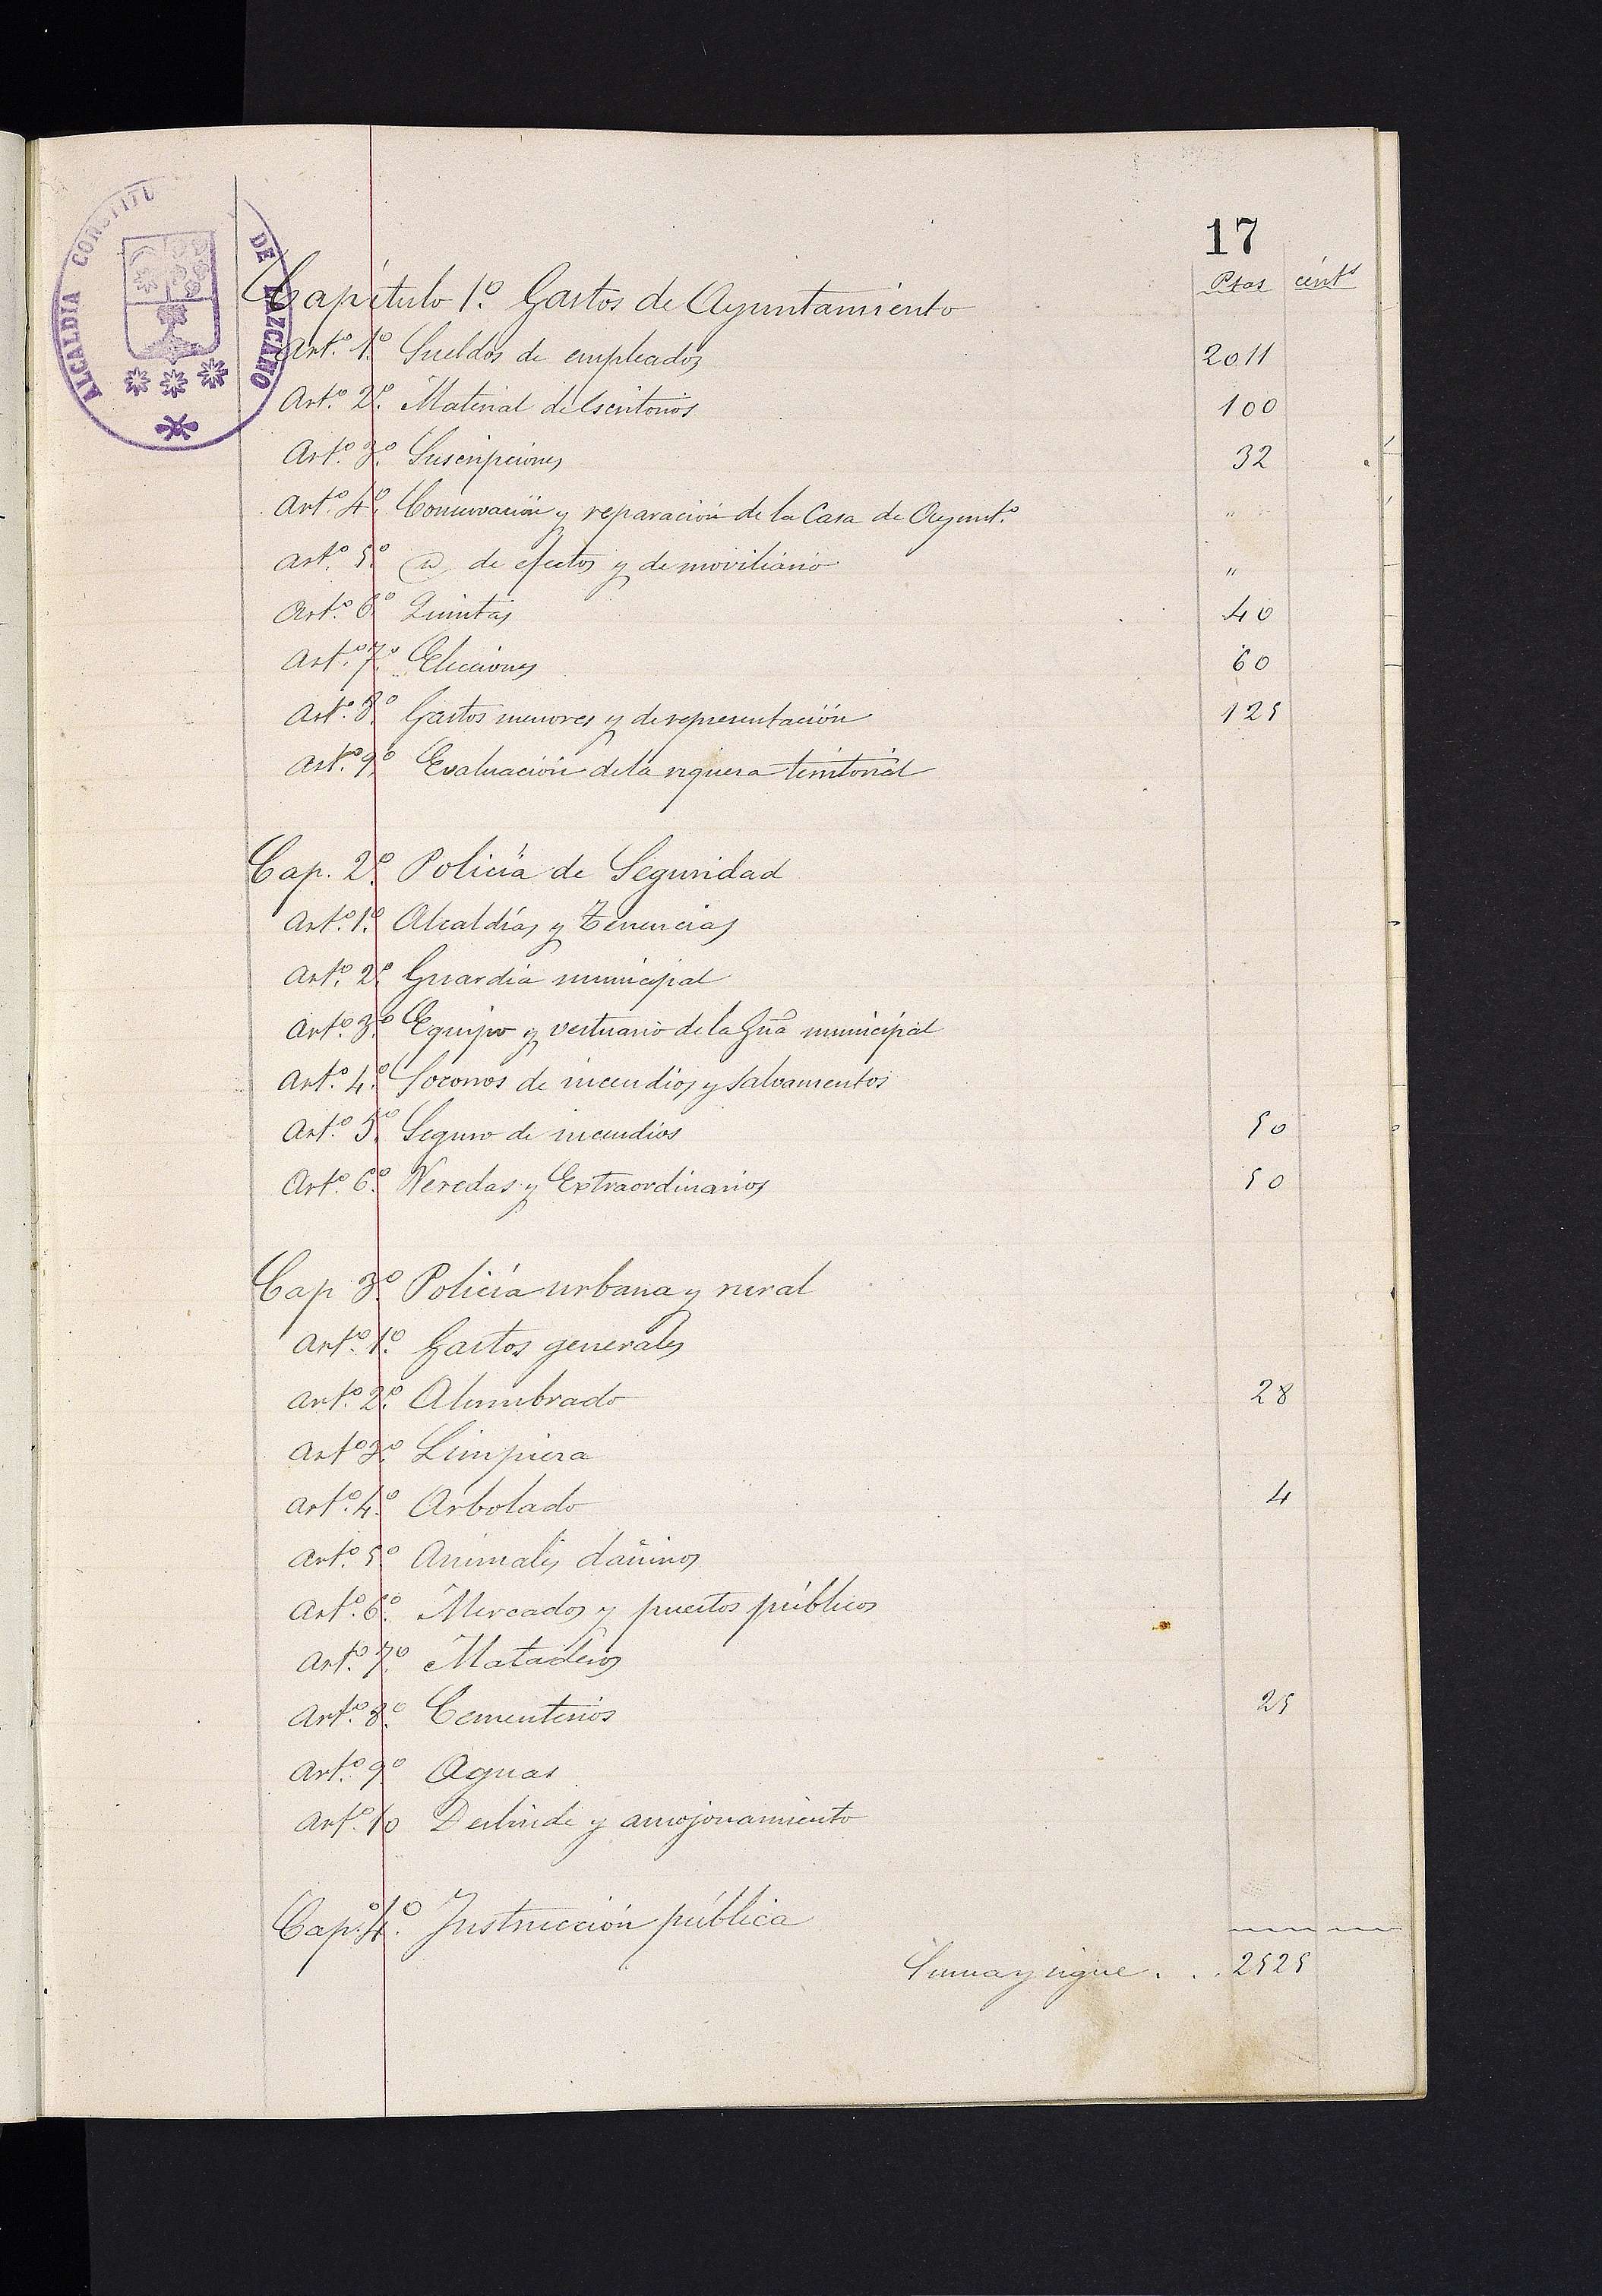 17
ALCALDÍA CONSTITU DE LAZCANO
Ptas cent.s
Capítulo 1.º Gastos de Ayuntamiento
Art.º 1.º Sueldos de empleados 2011
Art.º 2.º Material de Escritorios 100
Art.º 3.º Suscripciones 32
Art.º 4.º Conservación y reparación de la Casa de Ayunt.º "
Art.º 5.º de efectos y de moviliario "
Art.º 6.º Quintas 40
Art.º 7.º Elecciones 60
Art.º 8.º Gastos menores y de representación 125
Art.º 9.º Evaluación de la riquera territorial
Cap. 2.º Policía de Seguridad
Art.º 1.º Alcaldías y Tenencias
Art.º 2.º Guardia municipal
Art.º 3.º Equipo y vestuario de la Gūa municipal
Art.º 4.º Socorros de incendios y salvamentos
Art.º 5.º Seguro de incendios 50
Art.º 6.º Veredas y Extraordinarios 50
Cap 3.º Policía urbana y rural
Art.º 1.º Gastos generales
Art.º 2.º Alumbrado 28
Art.º 3.º Limpiera
Art.º 4.º Arbolado 4
Art.º 5.º Animales dañinos
Art.º 6.º Mercados y puestos públicos
Art.º 7.º Mataderos
Art.º 8.º Cementerios 25
Art.º 9.º Aguas
Art.º 10 Deslinde y amojonamiento
Cap.º 4.º Instrucción pública
Suma y sigue . . . 2525